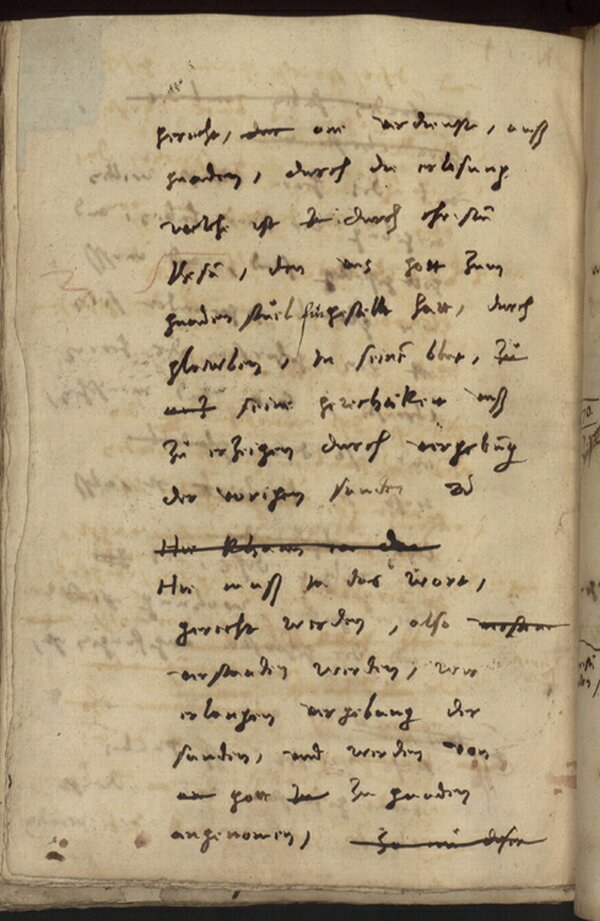 gerecht, on verdienst, auß
gnaden, durch die erlosung
welche ist durch christū
Jhesū, den uns gott zum
gnaden stuel furgestellt hatt, durch
glowben, in seinē blut,
seine gerechtikeit auß
zů erzeigen durch vergebūg
der vorigen sunden
Hie muß ia das wort,
gerecht werden, also
verstanden werden, wir
erlangen vergebung der
sunden, und werden von
gott zu gnaden
angenomen,